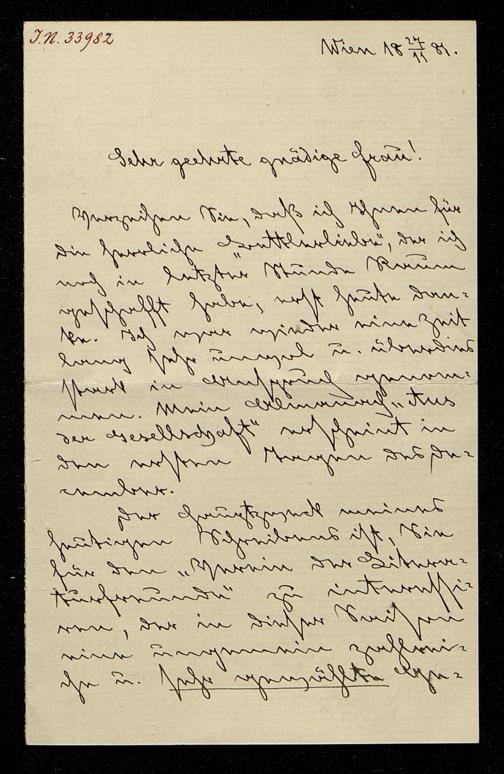 I.N. 33982
Wien 18 24/11 81.
Sehr geehrte gnädige Frau!
Verzeihen Sie, daß ich Ihnen für
die herrliche „Bettlerliebe“, der ich
noch in letzter Stunde Raum
geschafft habe, erst heute dan-
ke. Ich war wieder eine Zeit
lang sehr unwol u. überdies
stark in Anspruch genom-
men. Mein Almanach „Aus
der Gesellschaft“ erscheint in
den ersten Tagen des De-
cember.
Der Hauptzweck meines
heutigen Schreibens ist, Sie
für den „Verein der Litera-
turfreunde“ zu interessi-
ren, der in dieser Saison
eine ungemein zahlrei-
che u. sehr gewählte